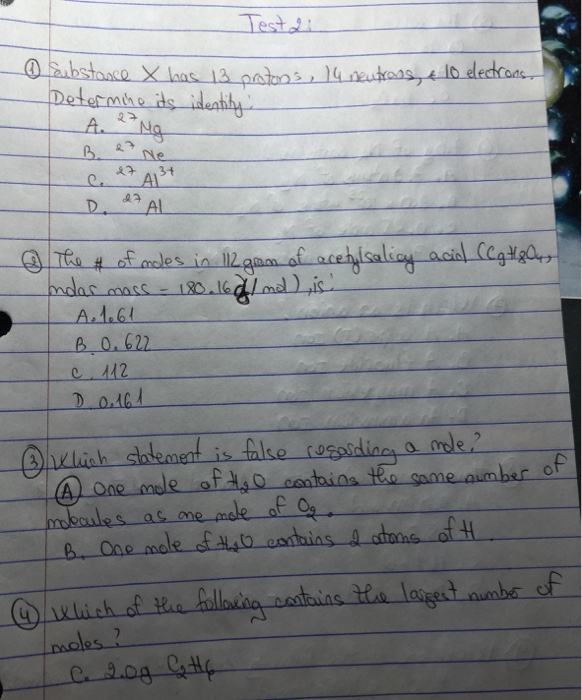 Test 2:
① Substance X has 13 protons, 14 neutrons, & 10 electrons.
Determine its identity:
A. ²⁷Ng
B. ²⁷Ne
C. ²⁷Al³⁺
D. ²⁷Al
② The # of moles in 112 gram of acetylsalicy acid (C9H8O4,
molar mass - 180.16g/mol), is:
A. 1.61
B. 0.622
C. 112
D. 0.161
③ Which statement is false regarding a mole?
Ⓐ One mole of H₂O contains the same number of
molecules as one mole of O₂.
B. One mole of H₂O contains 2 atoms of H.
④ Which of the following contains the largest number of
moles?
C. 2.0g C₂H₆